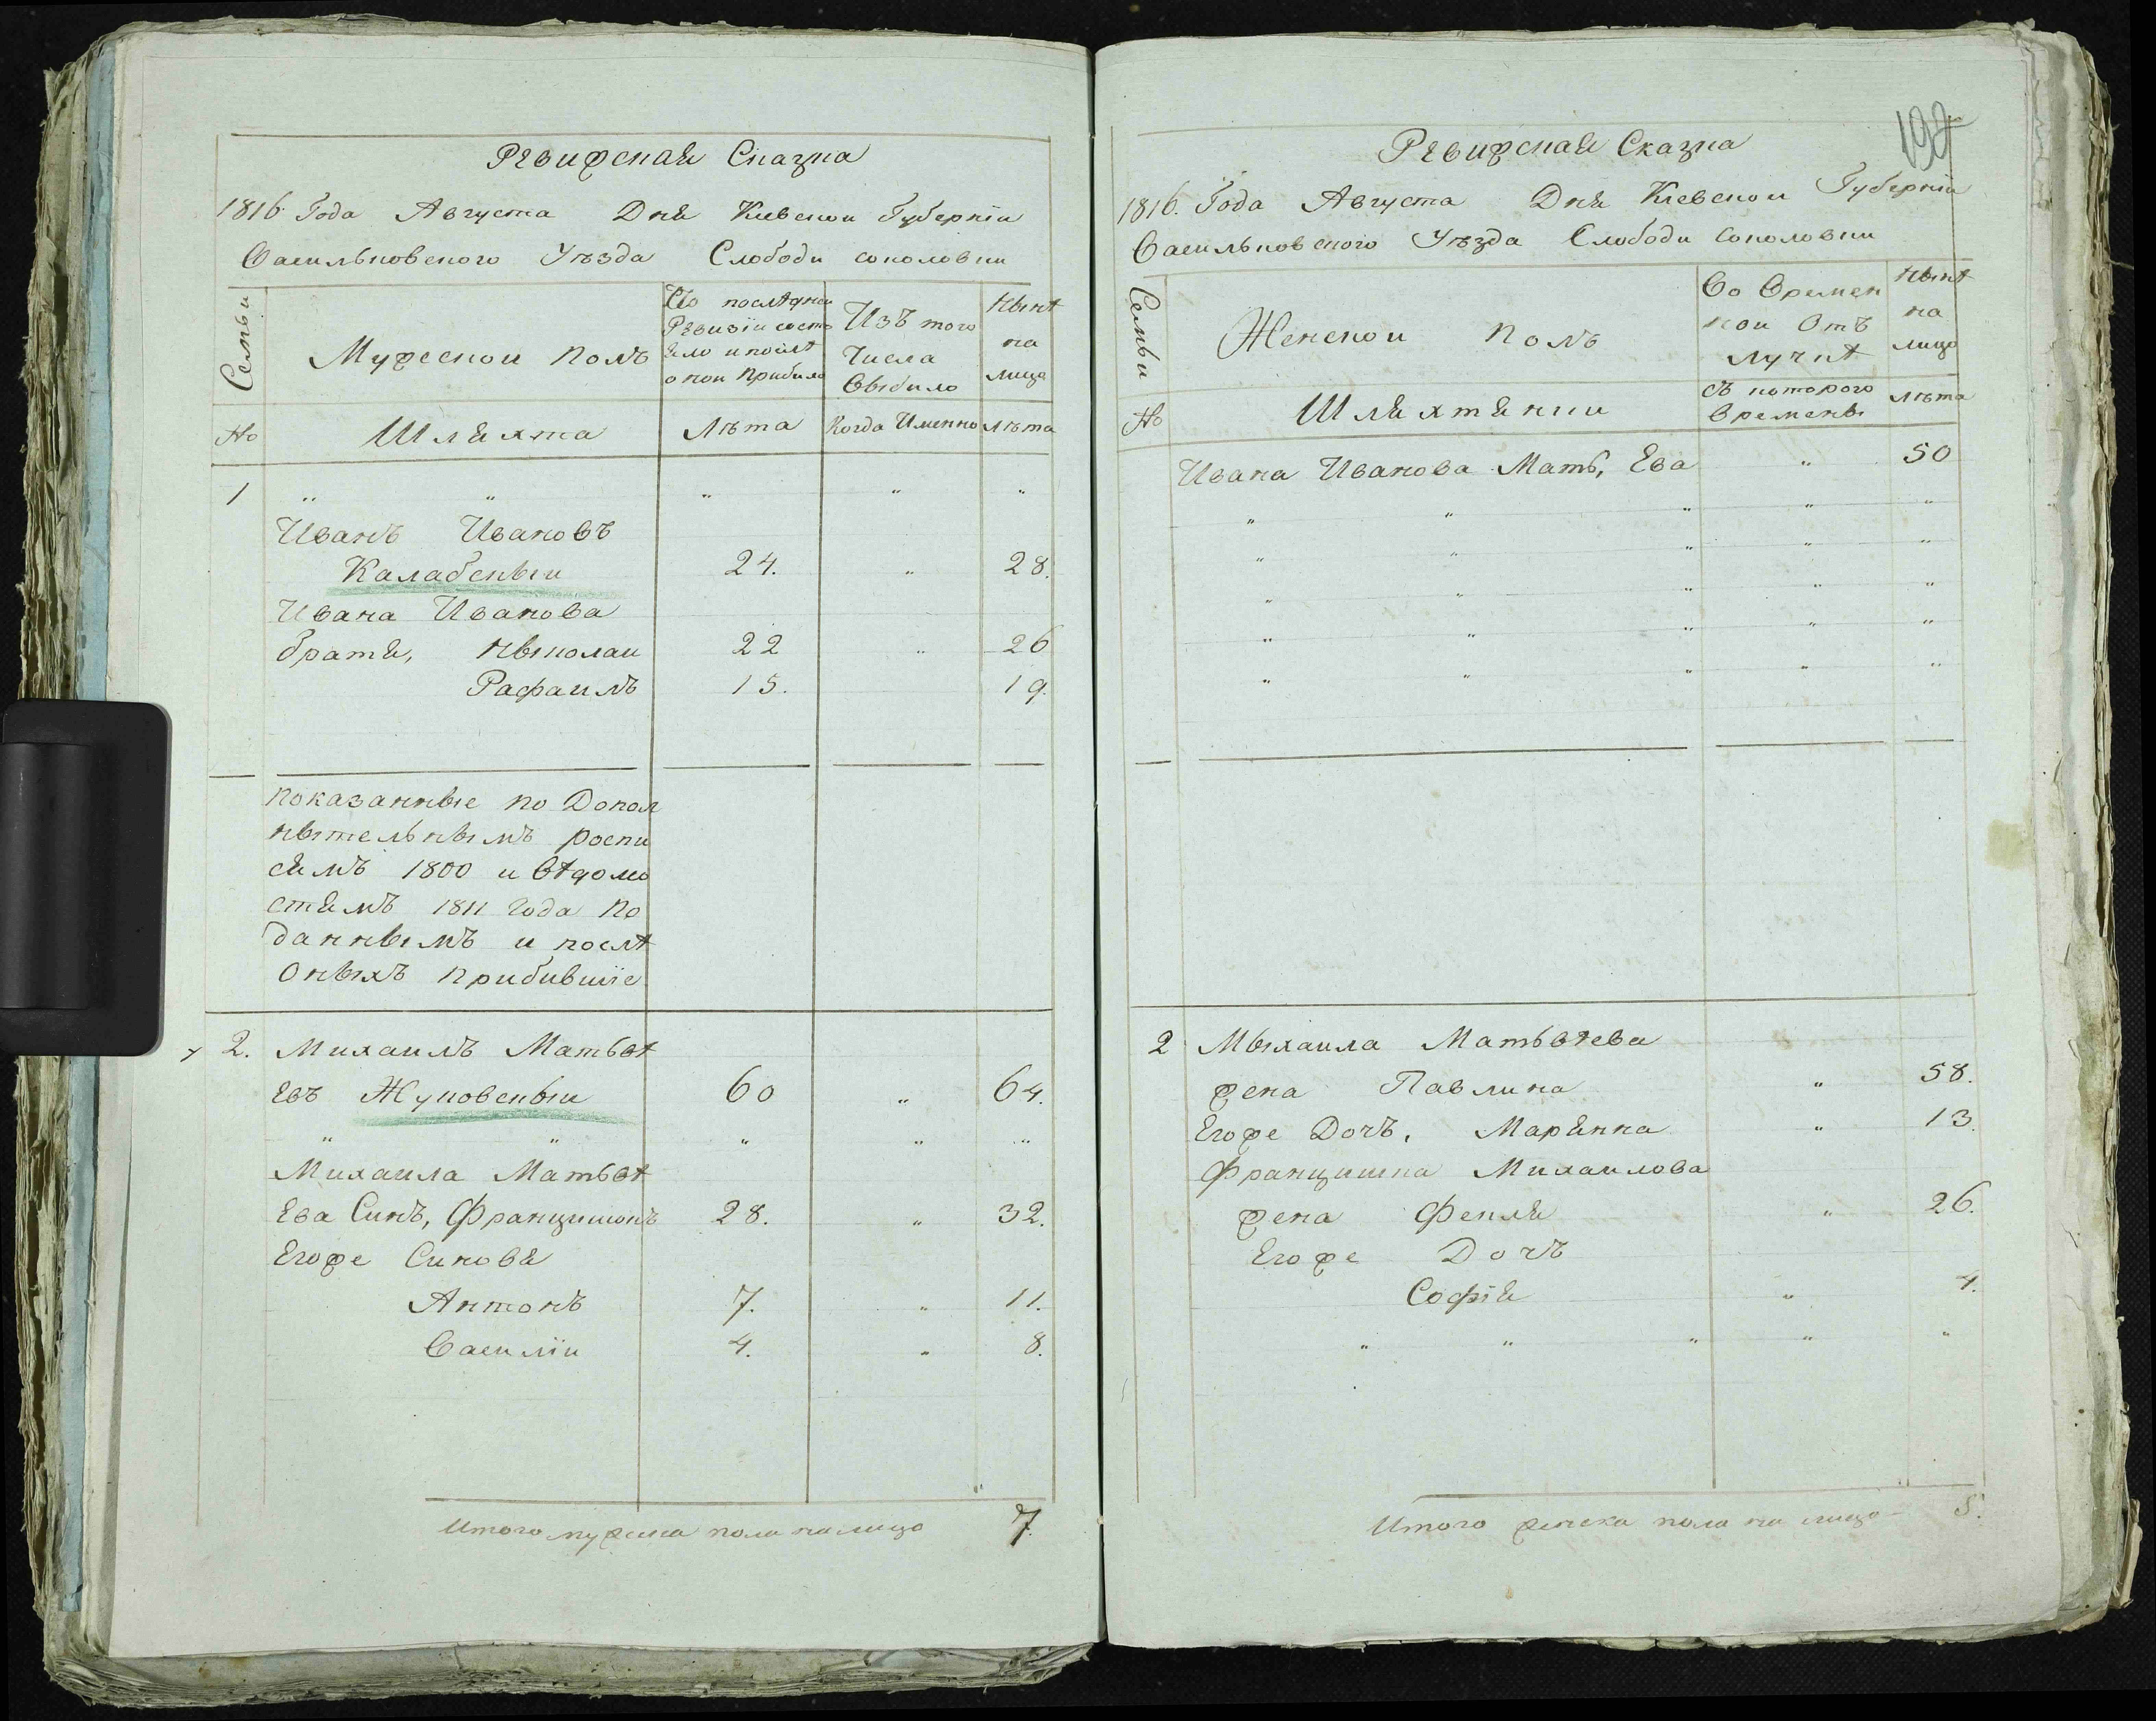 Ревижская Сказка
1816 Года Августа Дня Киевской Губерніи
Васильковского Уѣзда Слободи Соколовки
Семьи
Мужескои Полъ
Въ послѣднеи
Ревизіи состо
яло и после
онои Прибило
Изъ того
Числа
Выбило
Нынѣ
на
лицо
№
Шляхта
Лѣта
Когда Именно
Лѣта
1 " " " " "
Иванъ Ивановъ
Калабскыи 24. " 28.
Ивана Иванова
братя, Ныколаи 22 " 26
Рафаилъ 15. 19.
показанные по Допол
нытельнымъ роспи
сямъ 1800 и вѣдомо
стямъ 1811 года по
даннымъ и послѣ
Оныхъ прибившіе
2. Михаилъ Матьвѣ
евъ Жуковскыи 60 " 64.
" " " " "
Михаила Матьвѣ
ева Синъ, Францишокъ 28. " 32.
Егоже Синовя
Антонъ 7. " 11.
Василіи 4. " 8.
Итого мужеска пола на лицо 7.
192
Ревижская Сказка
1816. Года Августа Дня Киевской Губерніи
Васильковского Уѣзда Слободи Соколовки
Семьи
Женскои Полъ
Во Времен
нои Отъ
лучкѣ
Нынѣ
на
лицо
№
Шляхтянки
съ которого
Временъ
лѣта
Ивана Иванова Мать, Ева " 50
" " " " "
" " " " "
" " " " "
" " " " "
" " " " "
2 Мыхаила Матьвѣева
жена Павлина " 58.
Егоже Дочъ, Марянна " 13.
Францишка Михаилова
жена Фекля " 26.
Егоже Дочъ
Софія " 4.
" " " " "
Итого женска пола на лицо 5.